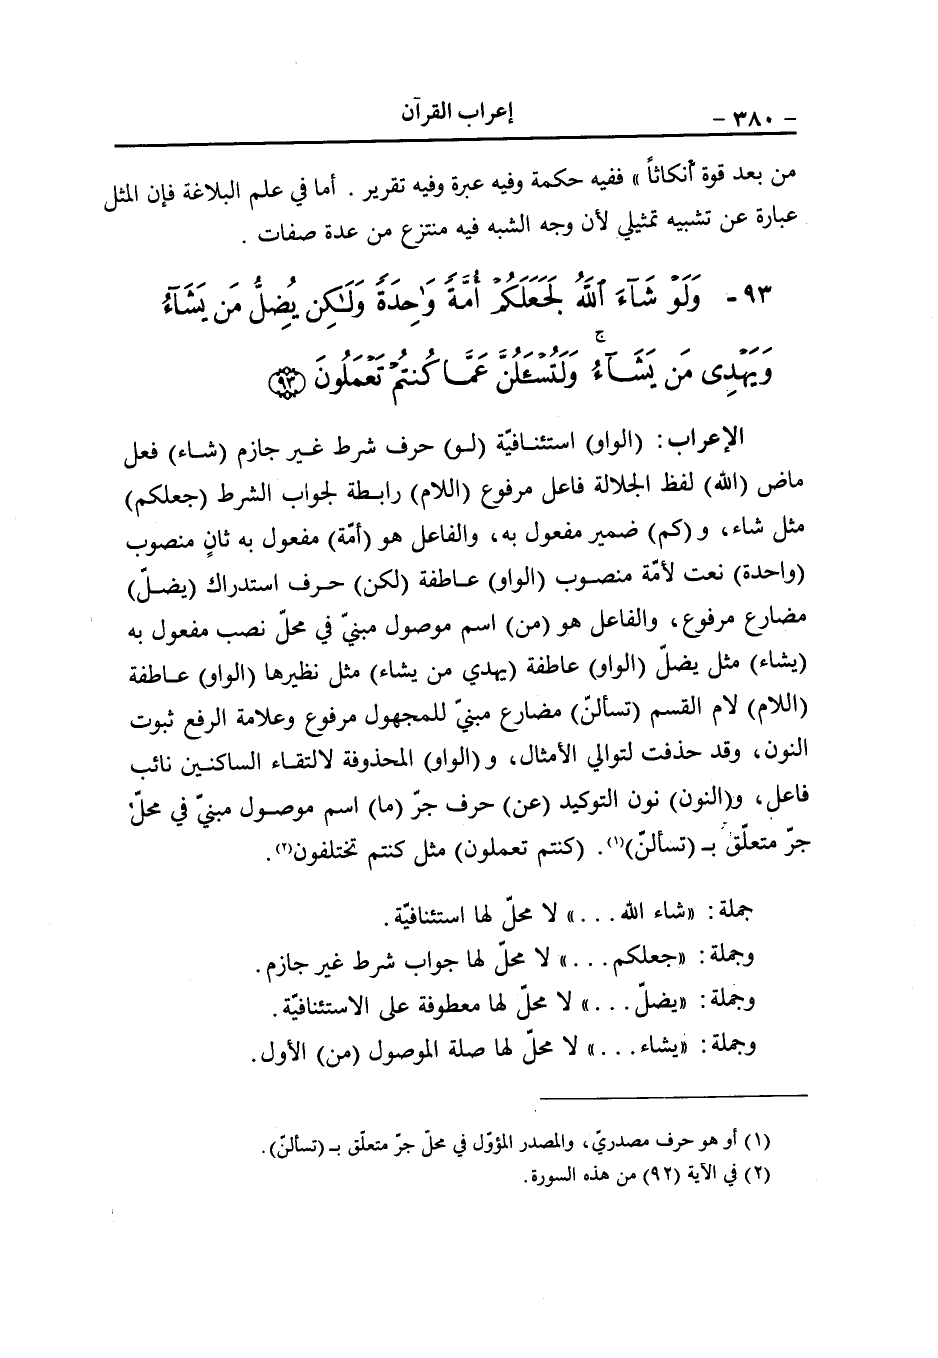 - ٣٨٠ - إعراب القرآن
من بعد قوة أنكاثاً » ففيه حكمة وفيه عبرة وفيه تقرير . أما في علم البلاغة فإن المثل
عبارة عن تشبيه تمثيلي لأن وجه الشبه فيه منتزع من عدة صفات .
٩٣ - وَلَوْ شَآءَ ٱللَّهُ لَجَعَلَكُمْ أُمَّةً وَٰحِدَةً وَلَٰكِن يُضِلُّ مَن يَشَآءُ
وَيَهْدِى مَن يَشَآءُ ۚ وَلَتُسْـَٔلُنَّ عَمَّا كُنتُمْ تَعْمَلُونَ ﴿٩٣﴾
الإعراب: (الواو) استئنافيّة (لو) حرف شرط غير جازم (شاء) فعل
ماض (الله) لفظ الجلالة فاعل مرفوع (اللام) رابطة لجواب الشرط (جعلكم)
مثل شاء، و (كم) ضمير مفعول به، والفاعل هو (أمّة) مفعول به ثانٍ منصوب
(واحدة) نعت لأمّة منصوب (الواو) عاطفة (لكن) حرف استدراك (يضلّ)
مضارع مرفوع، والفاعل هو (من) اسم موصول مبنيّ في محلّ نصب مفعول به
(يشاء) مثل يضلّ (الواو) عاطفة (يهدي من يشاء) مثل نظيرها (الواو) عاطفة
(اللام) لام القسم (تسألنّ) مضارع مبنيّ للمجهول مرفوع وعلامة الرفع ثبوت
النون، وقد حذفت لتوالي الأمثال، و (الواو) المحذوفة لالتقاء الساكنين نائب
فاعل، و(النون) نون التوكيد (عن) حرف جرّ (ما) اسم موصول مبنيّ في محلّ
جرّ متعلّق بـ (تسألنّ)(١). (كنتم تعملون) مثل كنتم تختلفون(٢).
جملة: «شاء الله ...» لا محلّ لها استئنافيّة.
وجملة: «جعلكم ...» لا محلّ لها جواب شرط غير جازم.
وجملة: «يضلّ ...» لا محلّ لها معطوفة على الاستئنافيّة.
وجملة: «يشاء ...» لا محلّ لها صلة الموصول (من) الأول.
(١) أو هو حرف مصدريّ، والمصدر المؤوّل في محلّ جرّ متعلّق بـ (تسألنّ).
(٢) في الآية (٩٢) من هذه السورة.